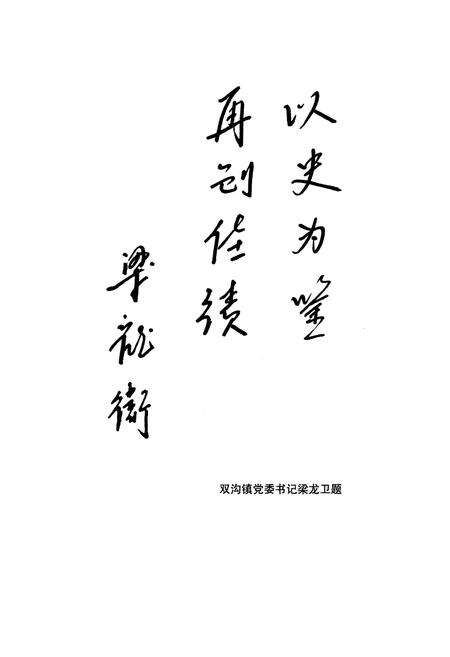 以史为鉴
再创佳绩
梁龙卫
双沟镇党委书记梁龙卫题